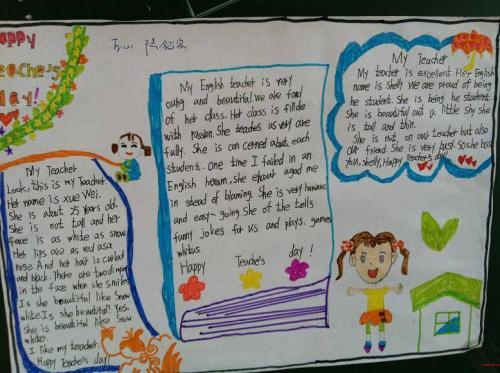 Happy
Teacher's
day!
My English teacher is very
oung and beautiful.we are fond
of her class. Her class is fillde
with passion. She teaches us very care
fully. She is con cerned about each
student. One time I failed in an
English
She
aged me
in stead of blaming. She is very humous
and easy-going She of the tells
funny jokes for us and plays. games
Happy Teache's day!
My Teacher
My teacher is excellent Her English
name is Shelly We are proud of being
he student. She is being he student.
She is beautiful out a little Shy She
is tall and thin.
She is not, on our teacher but also
our friend She is very busy. So
you, Shelly, Happy Teacher's day!
My Teacher
Look, this is my Teacher
Her name is xue Wei.
She is about 25 years old.
She is not tall and her
face is as white as snow
Her lips are as red as a
rose And her hair is curled
and black. There are two
in the face when she smiles
Is she beautiful like Snow
white Is She beautiful? Yes.
She is beautiful like Snow
white.
I like my teacher.
Happy Teache's day!